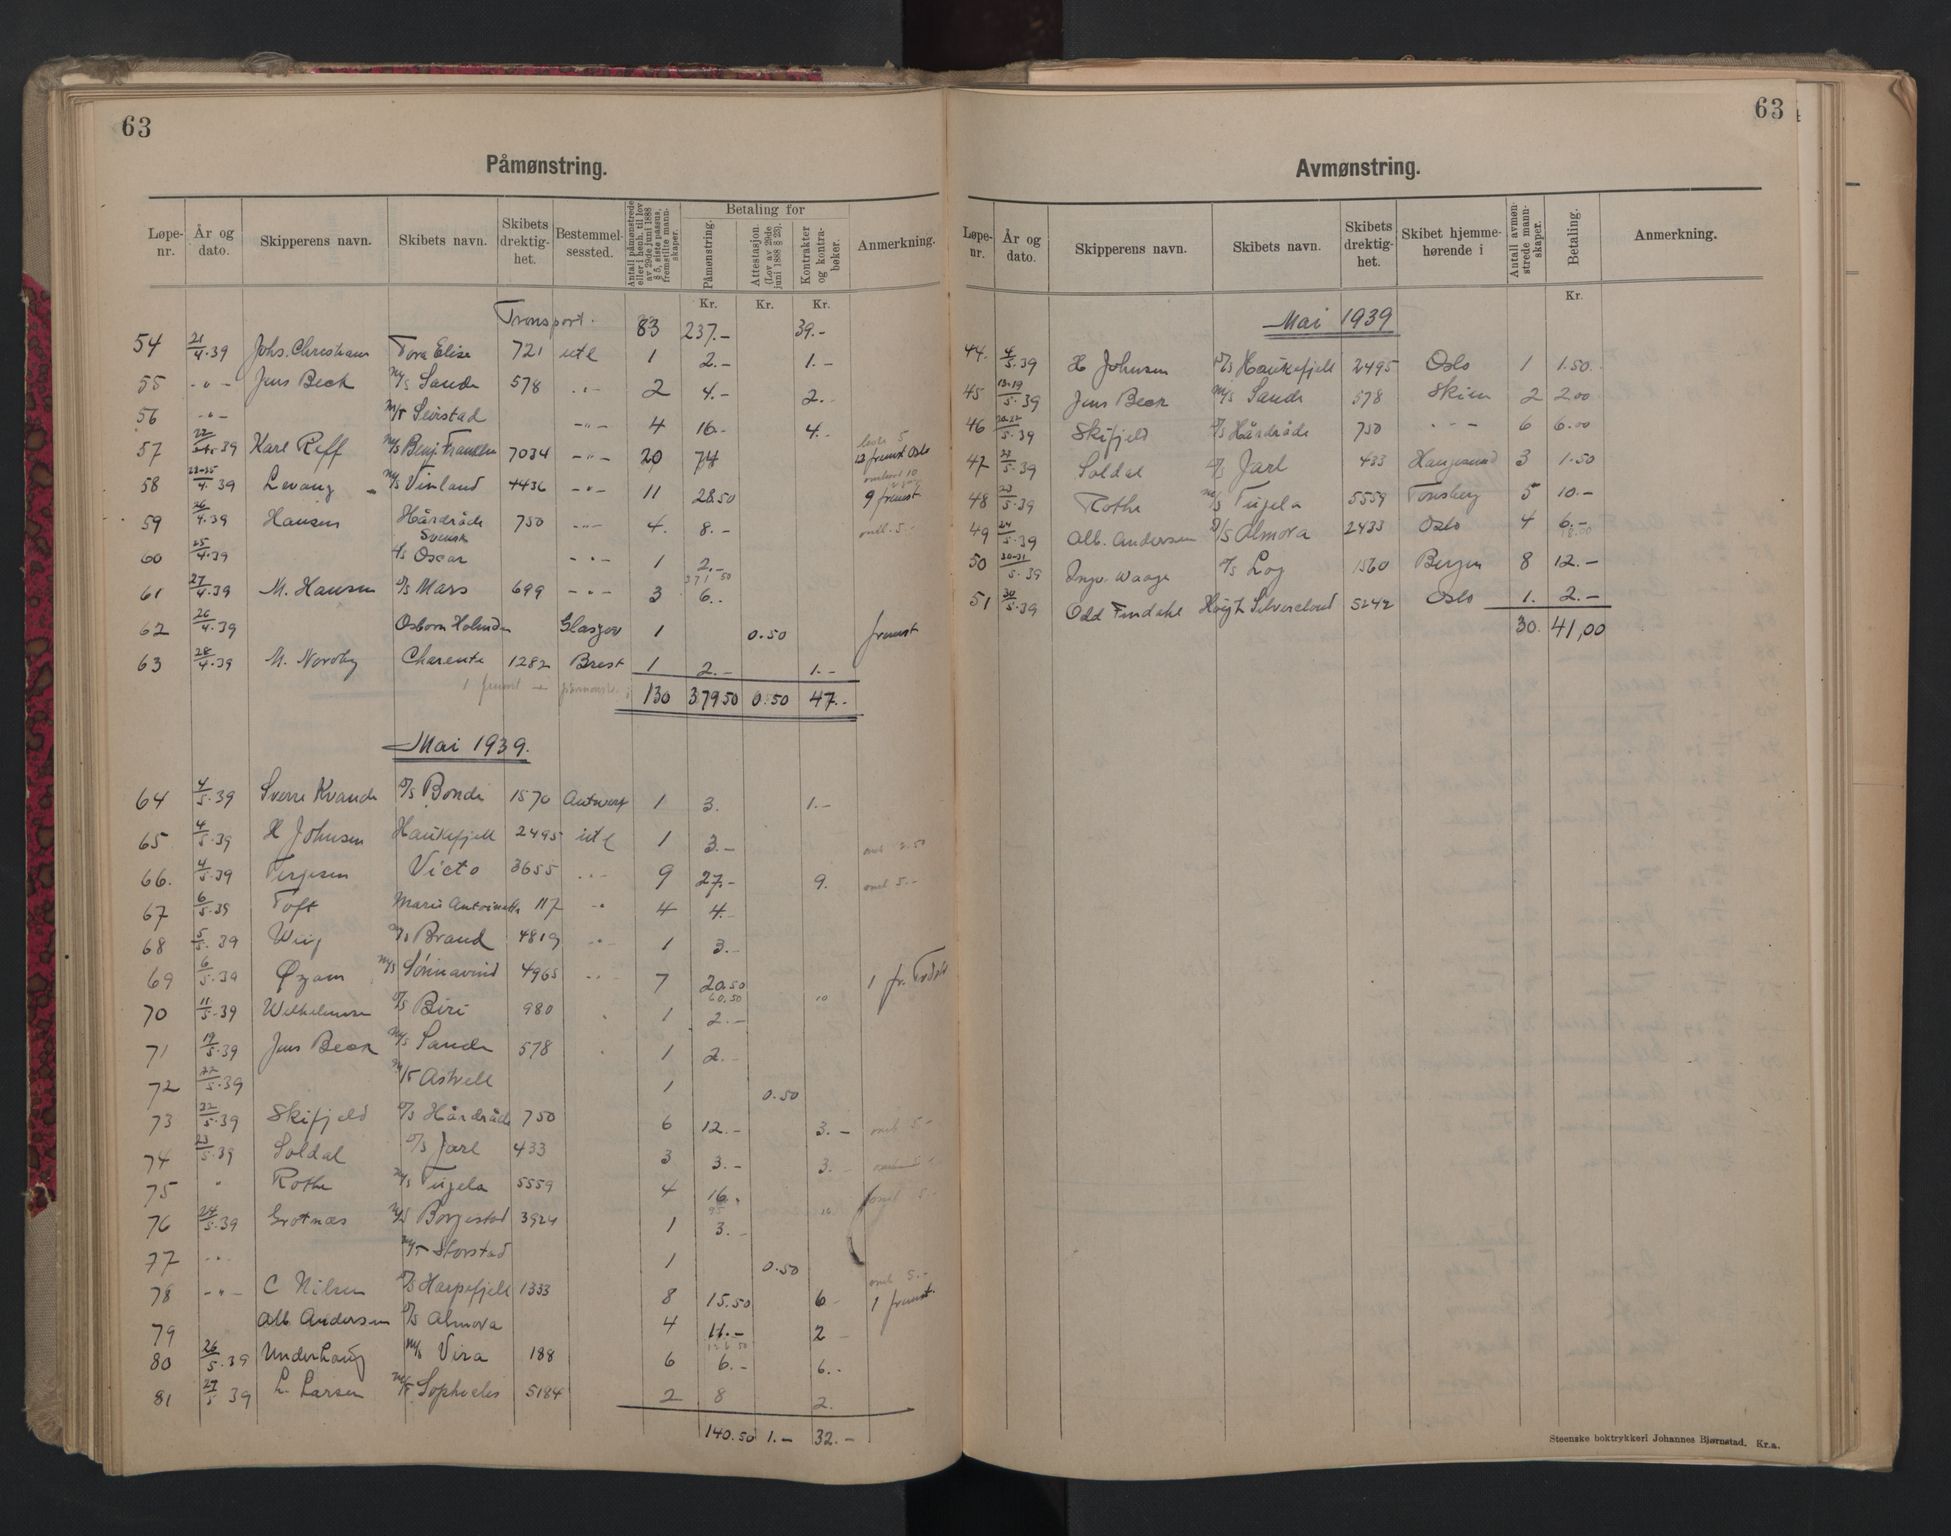 63
Påmønstring.
Løpe-nr. | År og dato. | Skipperens navn. | Skibets navn. | Skibets drektig-het. | Bestemmel-sessted. | Antall påmønstrede eller i henh. til lov av 29de juni 1888 § 5, siste passus, fremstilte mann-skaper. | Betaling for | Påmønstring. | Attestasjon (Lov av 29de juni 1888 § 23). | Kontrakter og kontra-bøker. | Anmerkning.
Kr. Kr. Kr.
Transport. 83 237.- 39.-
54 21/4.39 Johs. Christians Tora Elise 721 utl 1 2.- 1.-
55 -"- Jens Beck M/S Sande 578 -"- 2 4.- 2.-
56 -"- M/T Seirstad -"- 4 16.- 4.-
57 22/4.39 Karl Reff M/S Benj. Franklin 7034 -"- 20 74 12 fremst Oslo
58 23-25/4.39 Levang M/S Vinland 4436 -"- 11 28.50 9 fremst.
59 26/4.39 Hansen Hårdråde 750 -"- 4. 8.- 5.-
60 25/4.39 Svensk S/S Oscar -"- 1 2.-
371 50
61 27/4.39 M. Hansen D/S Mars 699 -"- 3 6..
62 26/4.39 Osborn Holmden Glasgow 1 0.50 fremst
63 28/4.39 M. Nordby Charente 1282 Brest 1 2.- 1.-
1 fremst 130 379.50 0.50 47.-
Mai 1939.
64 4/5.39 Sverre Kvande D/S Bonde 1570 Antwerp 1 3. 1.-
65 4/5.39 H Johnsen Haukefjell 2495 utl 1 3.- 2.50
66. 4/5.39 Terjesen Victo 3655 -"- 9 27.- 9. 5.-
67 6/5.39 Toft Marie Antoinette 117 -"- 4 4.-
68 5/5.39 Wiig M/S Brand 4819 -"- 1 3.-
69 6/5.39 M/S Sørinavind 4965 -"- 7 20.50
60.50 10
70 11/5.39 Wilhelmsen D/S Biri 980 1 2.-
71 19/5.39 Jens Beck M/S Sande 578 1 2.-
72 22/5.39 M/T Astrell 1 0.50
73 22/5.39 Skifjeld D/S Hårdråde 750 6 12.- 3.- 5.-
74 23/5.39 Soldal D/S Jarl 433 3 3.- 3.-
75 " Rothe M/S Tugela 5559 4 16. 5.-
95 16
76 24/5.39 Grotnæs M/S Borgestad 3924 1 3.
77 -"- M/T Storstad 1 0.50
78 -"- C Nilsen D/S Harpefjell 1333 8 15.50 6 - 5.- 1 fremst.
79 Alb. Andersen D/S Almora 4 11.- 2 -
126 50
80 26/5.39 Underhaug M/S Vira 188 6 6.- 6.-
81 27/5 39 L. Larsen M/T Sophocles 5184 2 8 2.
140.50 1.- 32.-
63
Avmønstring.
Løpe-nr. | År og dato. | Skipperens navn. | Skibets navn. | Skibets drektig-het. | Skibet hjemme-hørende i | Antall avmøn-strede mann-skaper. | Betaling. | Anmerkning.
Kr.
Mai 1939
44. 4/5.39 H Johnsen D/S Haukefjell 2495 Oslo 1 1.50.
45 13-19/5.39 Jens Beck M/S Sande 578 Skien 2 2.00
46 20-22/5.39 Skifjeld D/S Hårdråde 750 - " - 6 6.00
47 23/5.39 Soldal D/S Jarl 433 Haugesund 3 1.50
48 23/5.39 Rothe M/S Tugela 5559 Tønsberg 5 10.-
49 24/5.39 Alb. Andersen D/S Almora 2433 Oslo 4 6.-
50 30-31/5.39 Ingv. Waage D/S Log 1560 Bergen 8 12.-
51 30/5.39 Odd Findahl Høegh Silvercloud 5242 Oslo 1. 2.-
30. 41,00
Steenske boktrykkeri Johannes Bjørnstad. Kr.a.